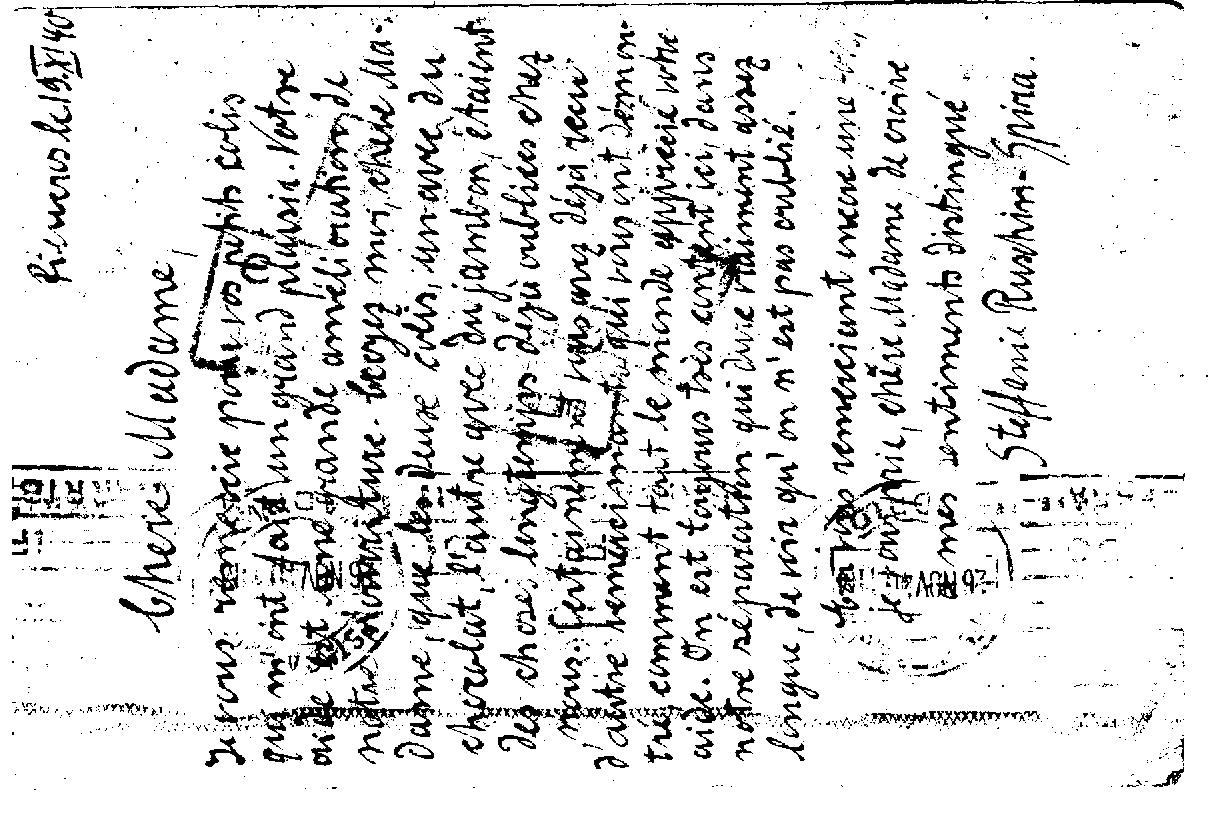 Rieucros le 19.XI 40
Chere Madame,
Je vous remercie pour vos petits colis
qui m'ont fait un grand plaisir. Votre
aide est une grande amélioration de
notre nourriture. Croyez moi, chère Ma-
dame, que les deux colis, un avec du
chocolat, l'autre avec du jambon, étaient
des chose longtemps déjà oubliées chez
nous. Certainement vous avez déjà reçu
d'autre remerciments qui vous ont démon-
tre comment tout le monde apprecié votre
aide. On est toujours très content ici, dans
notre séparation qui dure vraiment assez
longue, de voir qu'on n'est pas oublié.
vous remerciant encore une
je vous prie, chère Madame de croire
mes sentiments distingué
Steffanie Ruschin-Spira.
26 NOV 4